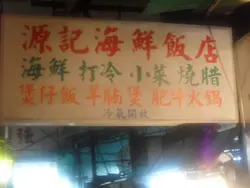 源記海鮮飯店
海鮮 打冷 小菜 燒腊
煲仔飯 羊腩煲 肥牛火鍋
冷氣開放